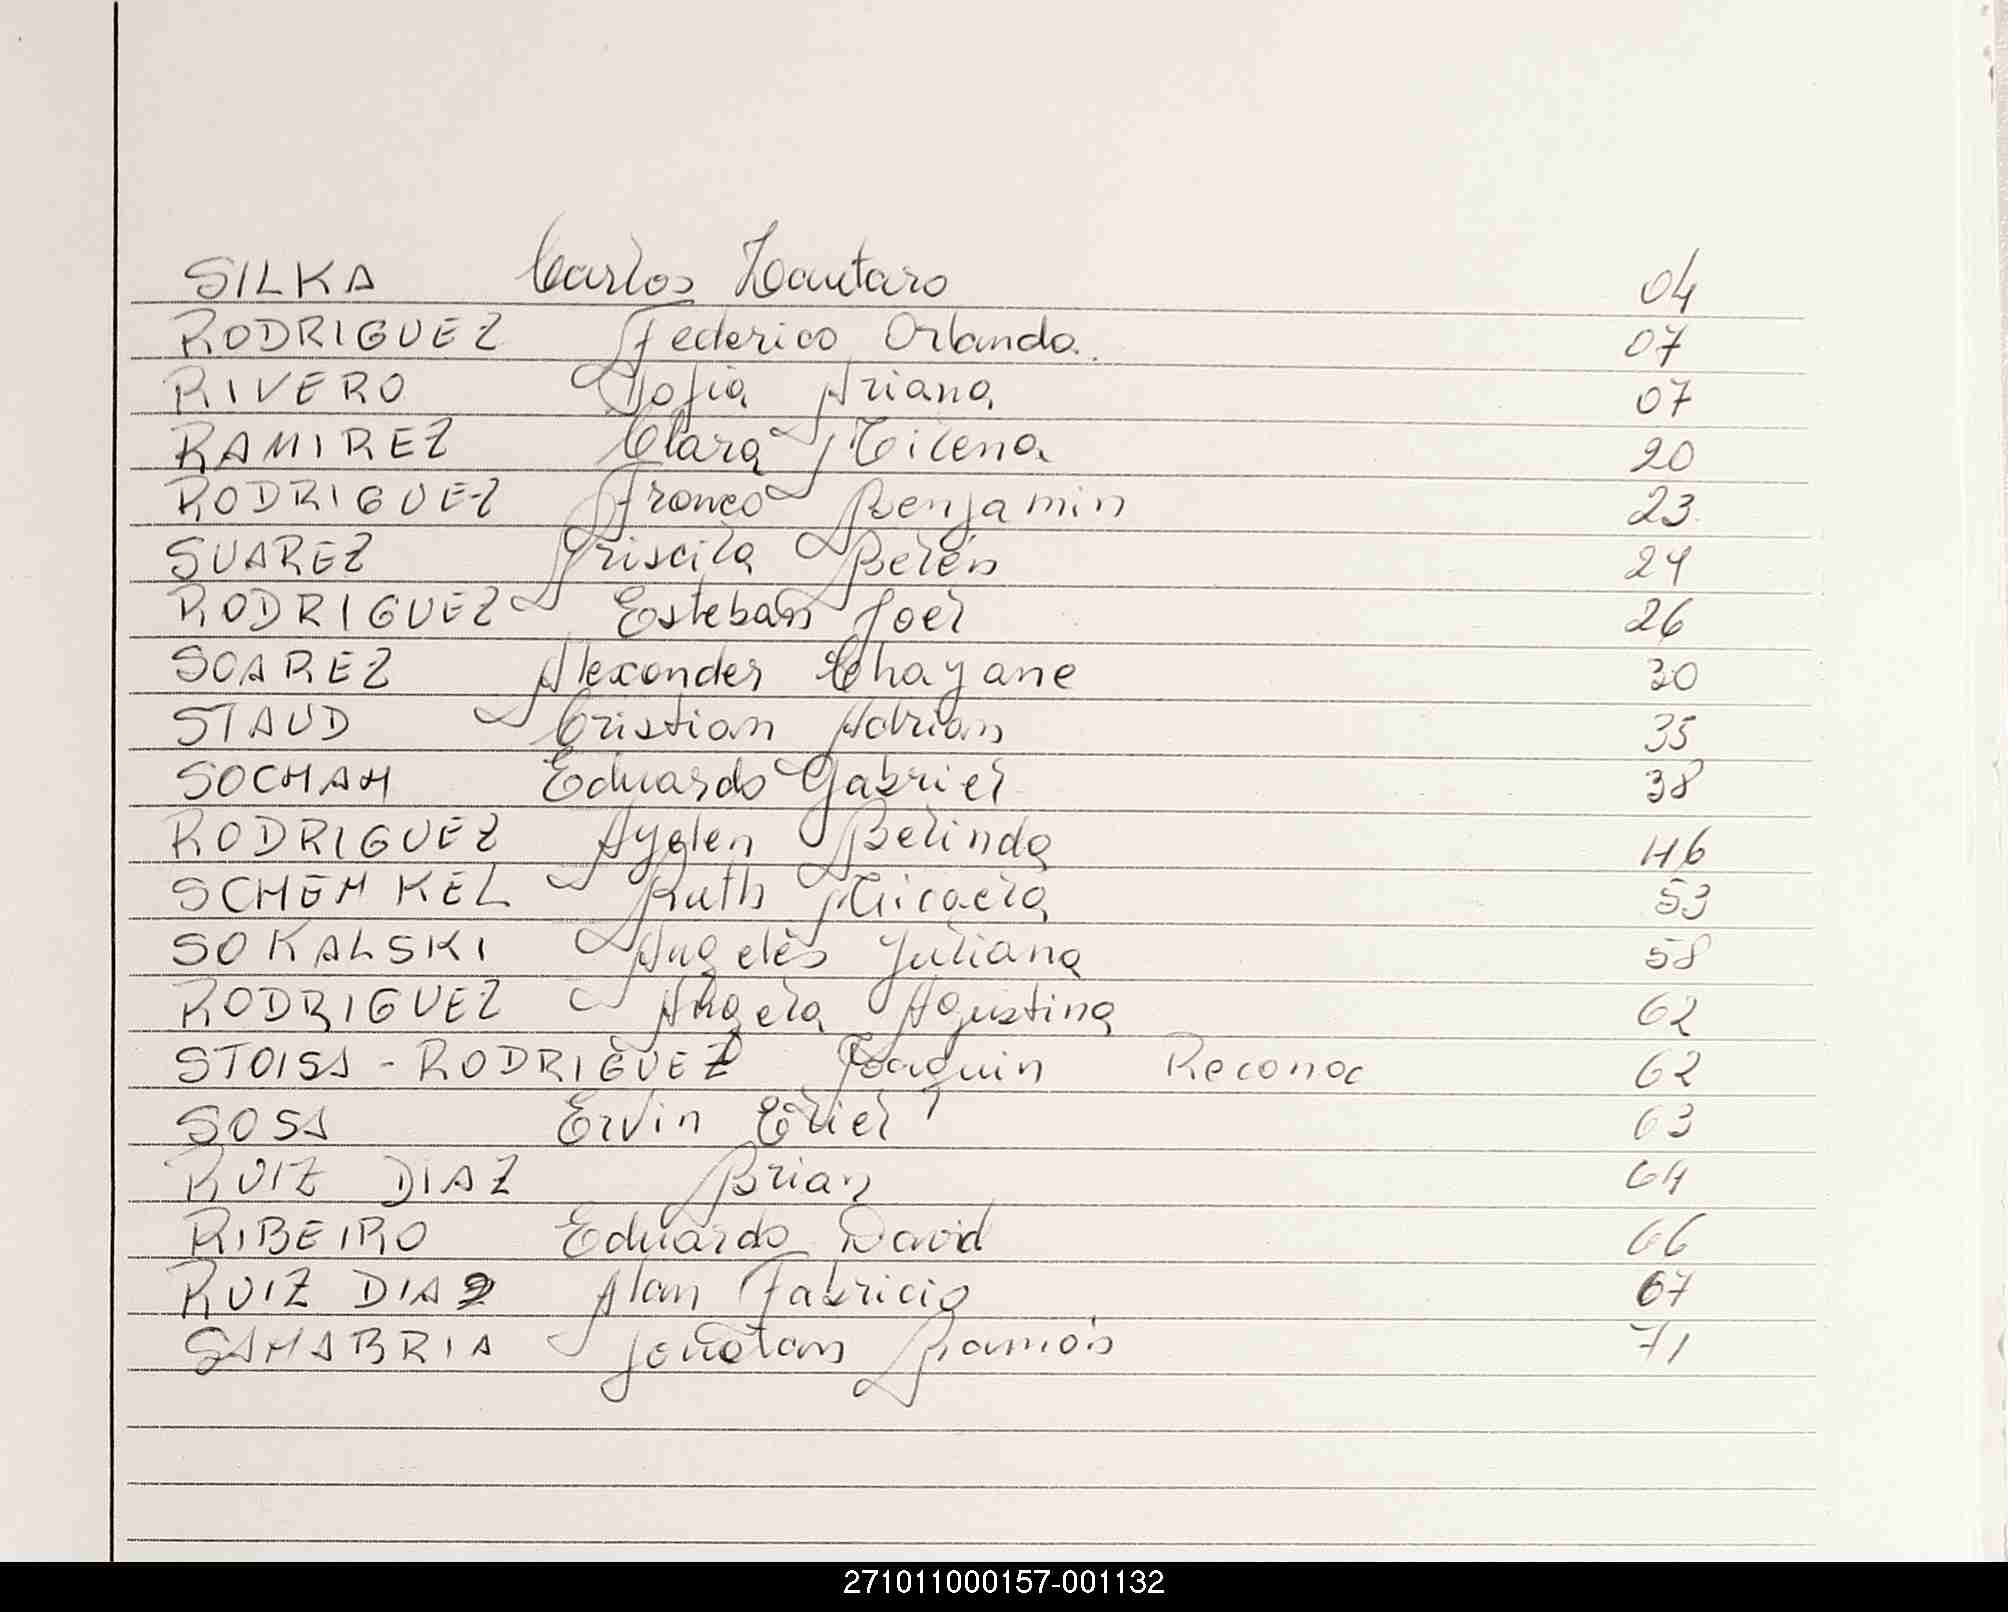 SILKA Carlos Lautaro 04
RODRIGUEZ Federico Orlando. 07
RIVERO Sofia Ariana 07
RAMIREZ Clara Milena 20
RODRIGUEZ Franco Benjamin 23
SUAREZ Priscila Belén 24
RODRIGUEZ Esteban Joel 26
SOAREZ Alexander Chayane 30
STAUD Cristian Adrian 35
SOCHAN Eduardo Gabriel 38
RODRIGUEZ Ayelen Belinda 46
SCHENKEL Ruth Micaela 53
SOKALSKI Angeles Juliana 58
RODRIGUEZ Angela Agustina 62
STOISA - RODRIGUEZ Joaquin Reconoc 62
SOSA Ervin Eliel 63
RUIZ DIAZ Brian 64
RIBEIRO Eduardo David 66
RUIZ DIAZ Alan Fabricio 67
SANABRIA Jonatan Ramón 71
271011000157-001132